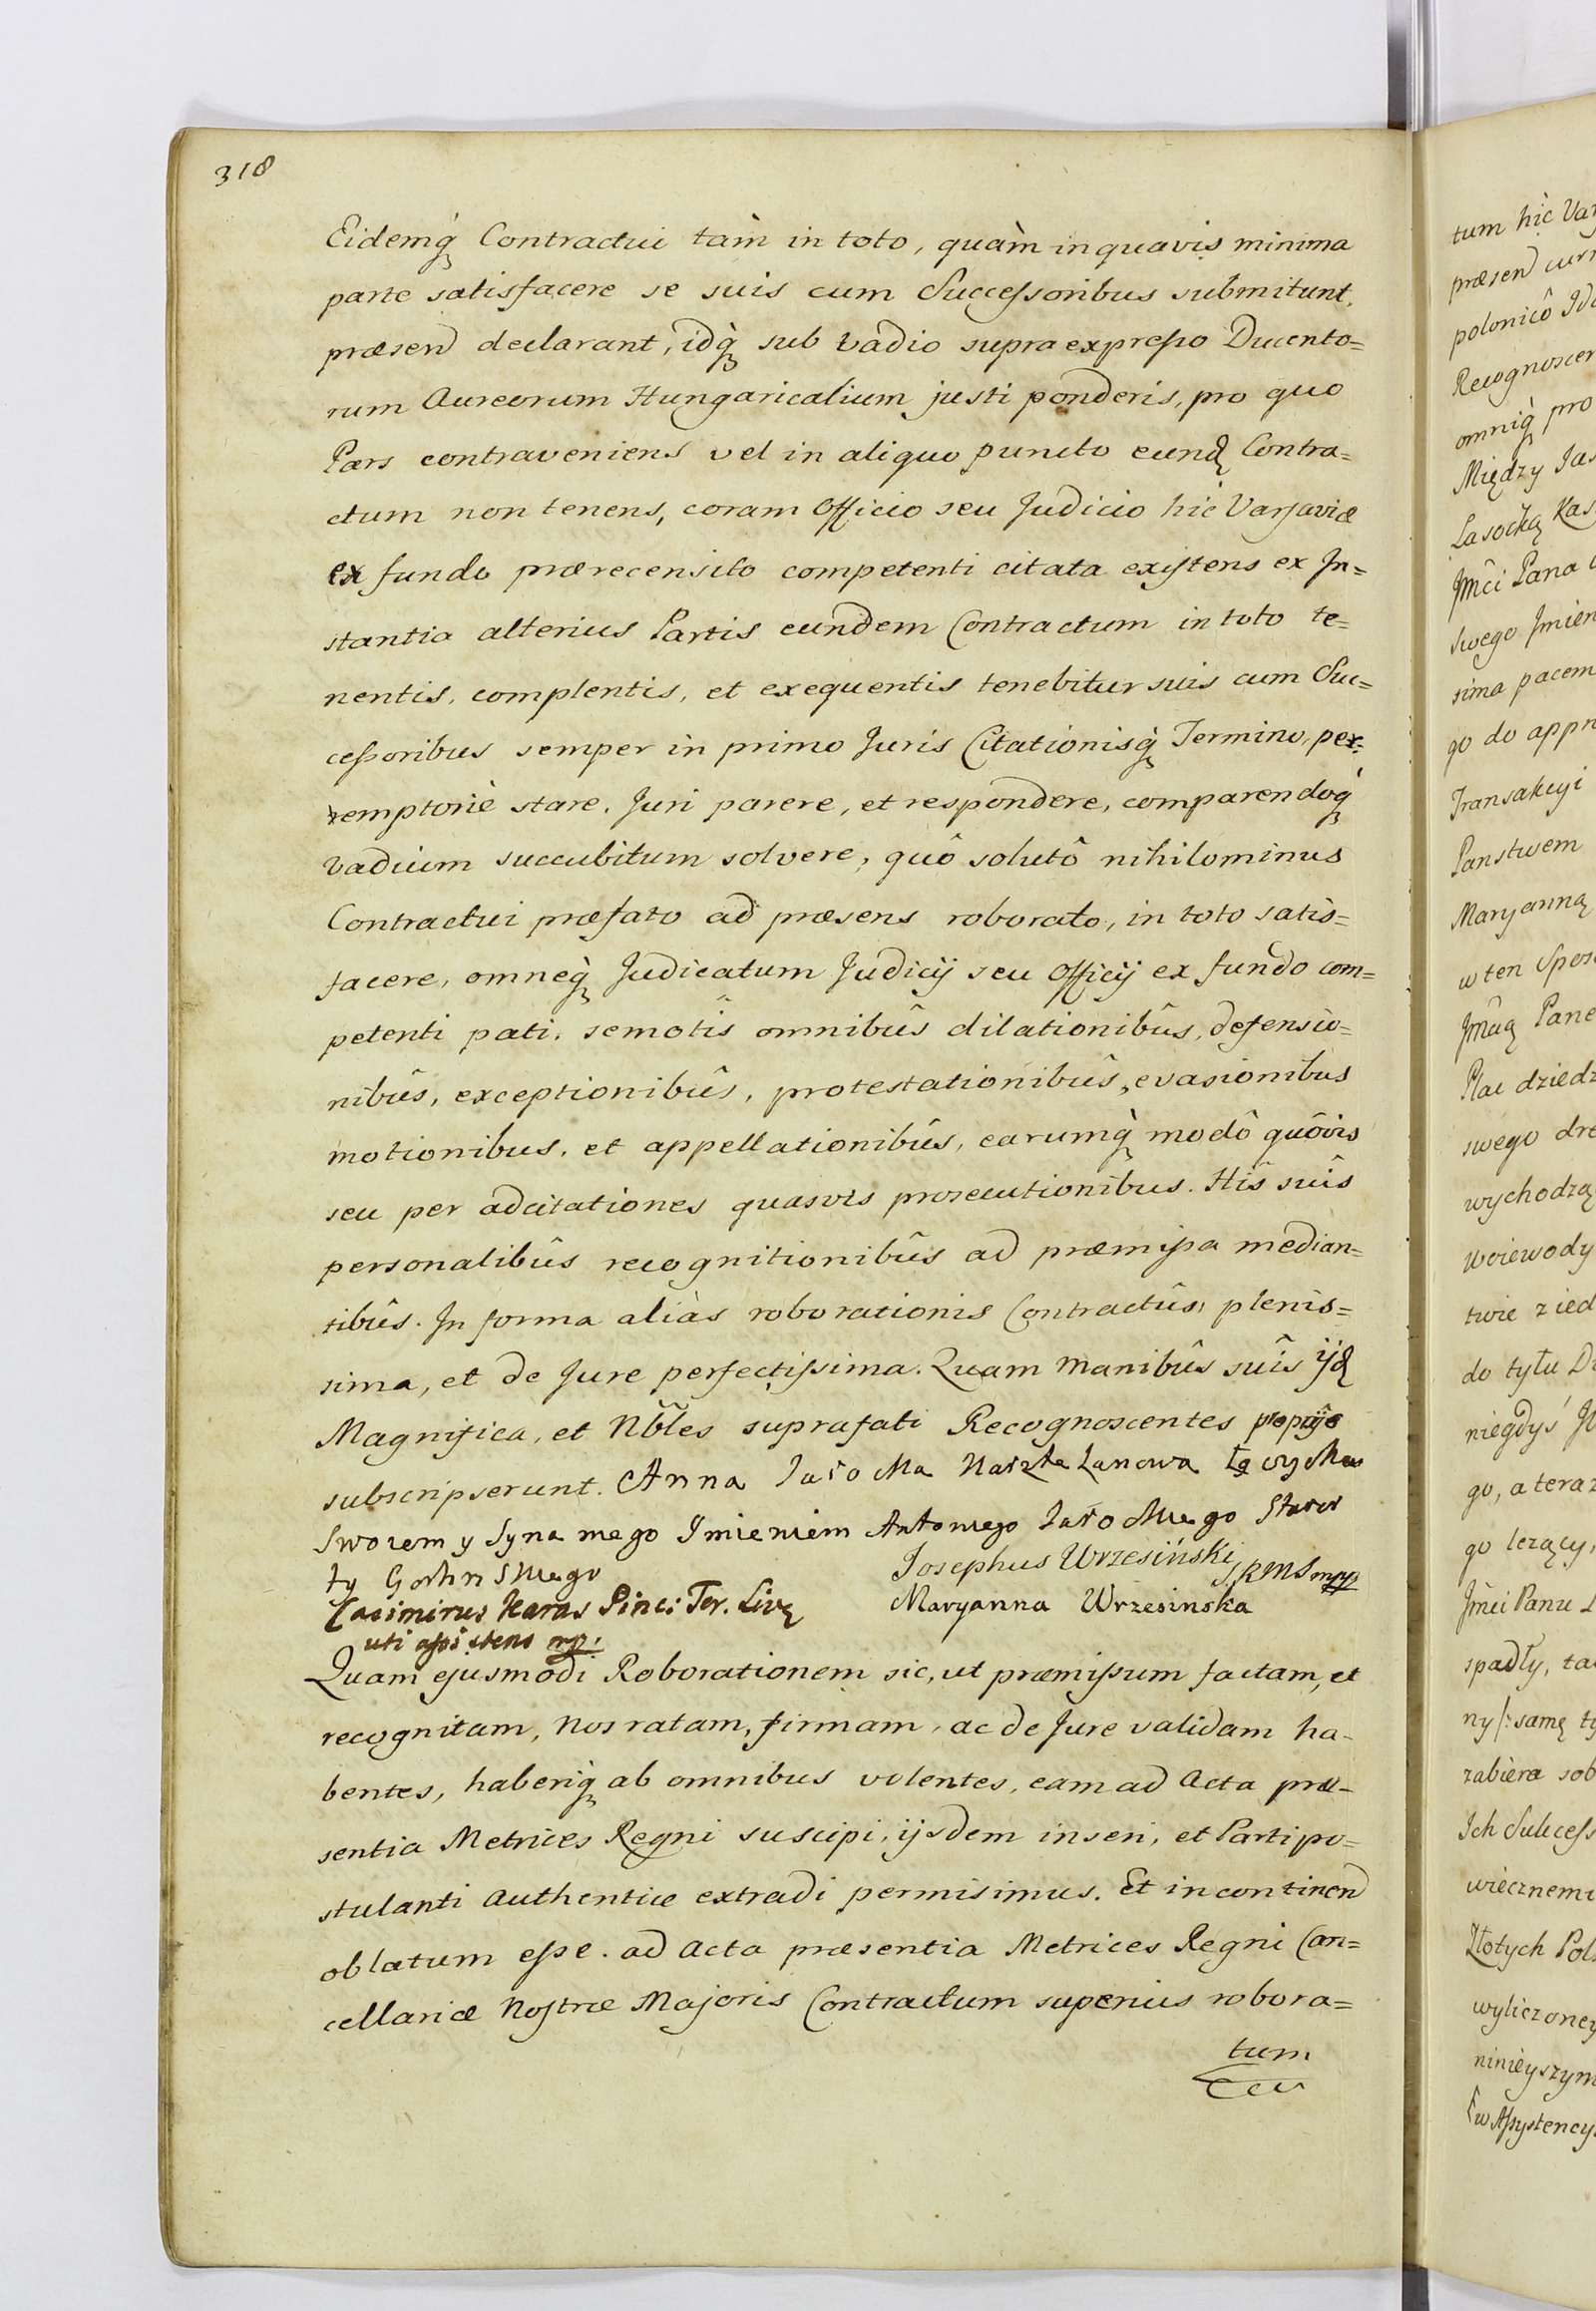 318
Eidemq́ Contractui tàm in toto, quàm in quavis minima
parte satisfacere se suis cum Successoribus submitunt,
præsend declarant, idq́ sub vadio supra expresso Ducento=
rum Aureorum Hungaricalium justi ponderis, pro quo
Pars contraveniens vel in aliquo puncto eund Contra=
ctum non tenens, coram Officio seu Judicio hic Varsaviæ
ex fundo prærecensito competenti citata existens ex In=
stantia alterius Partis eundem Contractum in toto te=
nentis, complentis, et exequentis tenebitur suis cum Suc=
cessoribus semper in primo Juris Citationisq́ Termino, per=
emptoriè stare, Juri parere, et respondere, comparendoq́
vadium succubitum solvere, quô solutô nihilominus
Contractui præfato ad præsens roborato, in toto satis=
facere, omneq́ Judicatum Judicij seu Officij ex fundo com=
petenti pati, semotîs omnibûs dilationibûs, defensio=
nibûs, exceptionibûs, protestationibûs, evasionibus
motionibus, et appellationibûs, earumq́ modô quôvis
seu per adcitationes quasvis prosecutionibus. Hîs suîs
personalibûs recognitionibûs ad præmissa median=
tibûs. In forma aliàs roborationis Contractûs, plenis=
sima, et de Jure perfectissima. Quam manibûs suîs ijd
Magnifica, et Nbles suprafati Recognoscentes proprijs
subscripserunt. Anna Lasocka Kasztelanowa Łęczycka
Swoiem y Syna mego Imieniem Antoniego Lasockiego Staros
ty Gostynskiego
Josephus Wrzesiński SRMS mpp
Casimirus Karas Pinc: Ter. Liv
Maryanna Wrzesinska
uti assistens mp.
Quam ejusmodi Roborationem sic, ut præmissum factam, et
recognitam, Nos ratam, firmam, ac de Jure validam ha-
bentes, haberiq́ ab omnibus volentes, eam ad Acta præ-
sentia Metrices Regni suscipi, ijsdem inseri, et Parti po=
stulanti authentice extradi permisimus. Et incontinend
oblatum esse ad Acta præsentia Metrices Regni Can=
cellariæ Nostræ Majoris Contractum superius robora=
tum
tum hîc Var
præsend curr
polonicô Id
Recognoscen
omniq́ pro
Między Jaś
Lasocką Kas
Jmći Pana
swego Jmien
sima pacem
go do appr
Transakcyi
Panstwem
Maryanną
w ten Spos
Jmcią Pane
Plac dziedz
swego dre
wychodzą
Woiewody
twie zied
do tyłu D
niegdyś J
go, a teraz
go lezący,
Jmći Panu L
spadły, ta
ny /: samę ty
zabiera sob
Ich Sukcess
wiecznemi
Złotych Pols
wyliczoney
ninieyszym
w Assystency